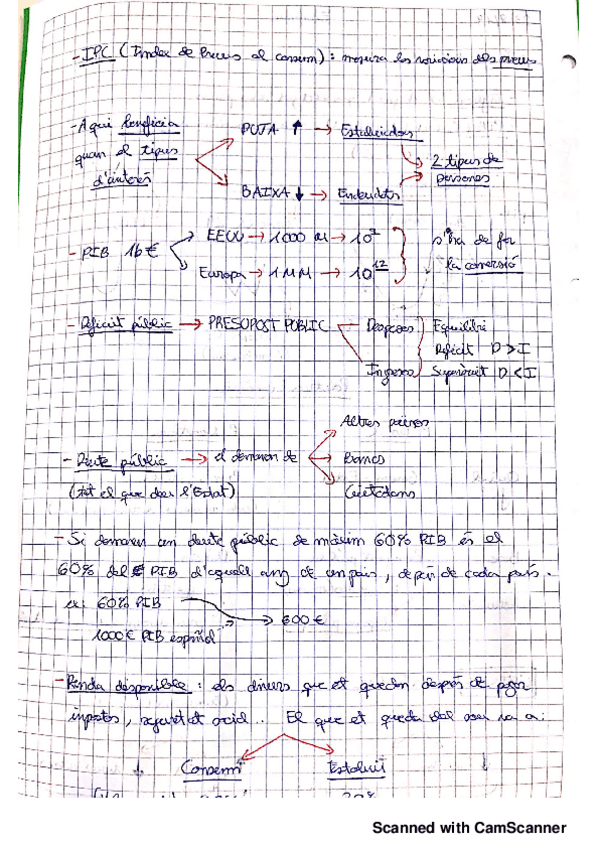 - IPC (Índex de Preus al consum) : mesura les variacions dels preus
- A qui beneficia
quan el tipus
d'interès
PUJA ↑ → Estalviadors
BAIXA ↓ → Endeutats
2 tipus de
persones
- PIB 1b €
EEUU → 1000 M → 10⁹
Europa → 1 MM → 10¹²
s'ha de fer
la conversió
- Dèficit públic → PRESUPOST PUBLIC
Despeses
Ingresos
Equilibri
Dèficit D > I
Superàvit D < I
- Deute públic → el demanen de
(tot el que deu l'Estat)
Altres països
Bancs
Ciutadans
- Si demanen un deute públic de màxim 60% PIB és el
60% del PIB d'aquell any de un país, depèn de cada país.
ex: 60% PIB
1000€ PIB español
→ 600 €
- Renda disponible : els diners que et queden després de pagar
impostos, seguretat social.. El que et queda del sou va a:
Consum
Estalvi